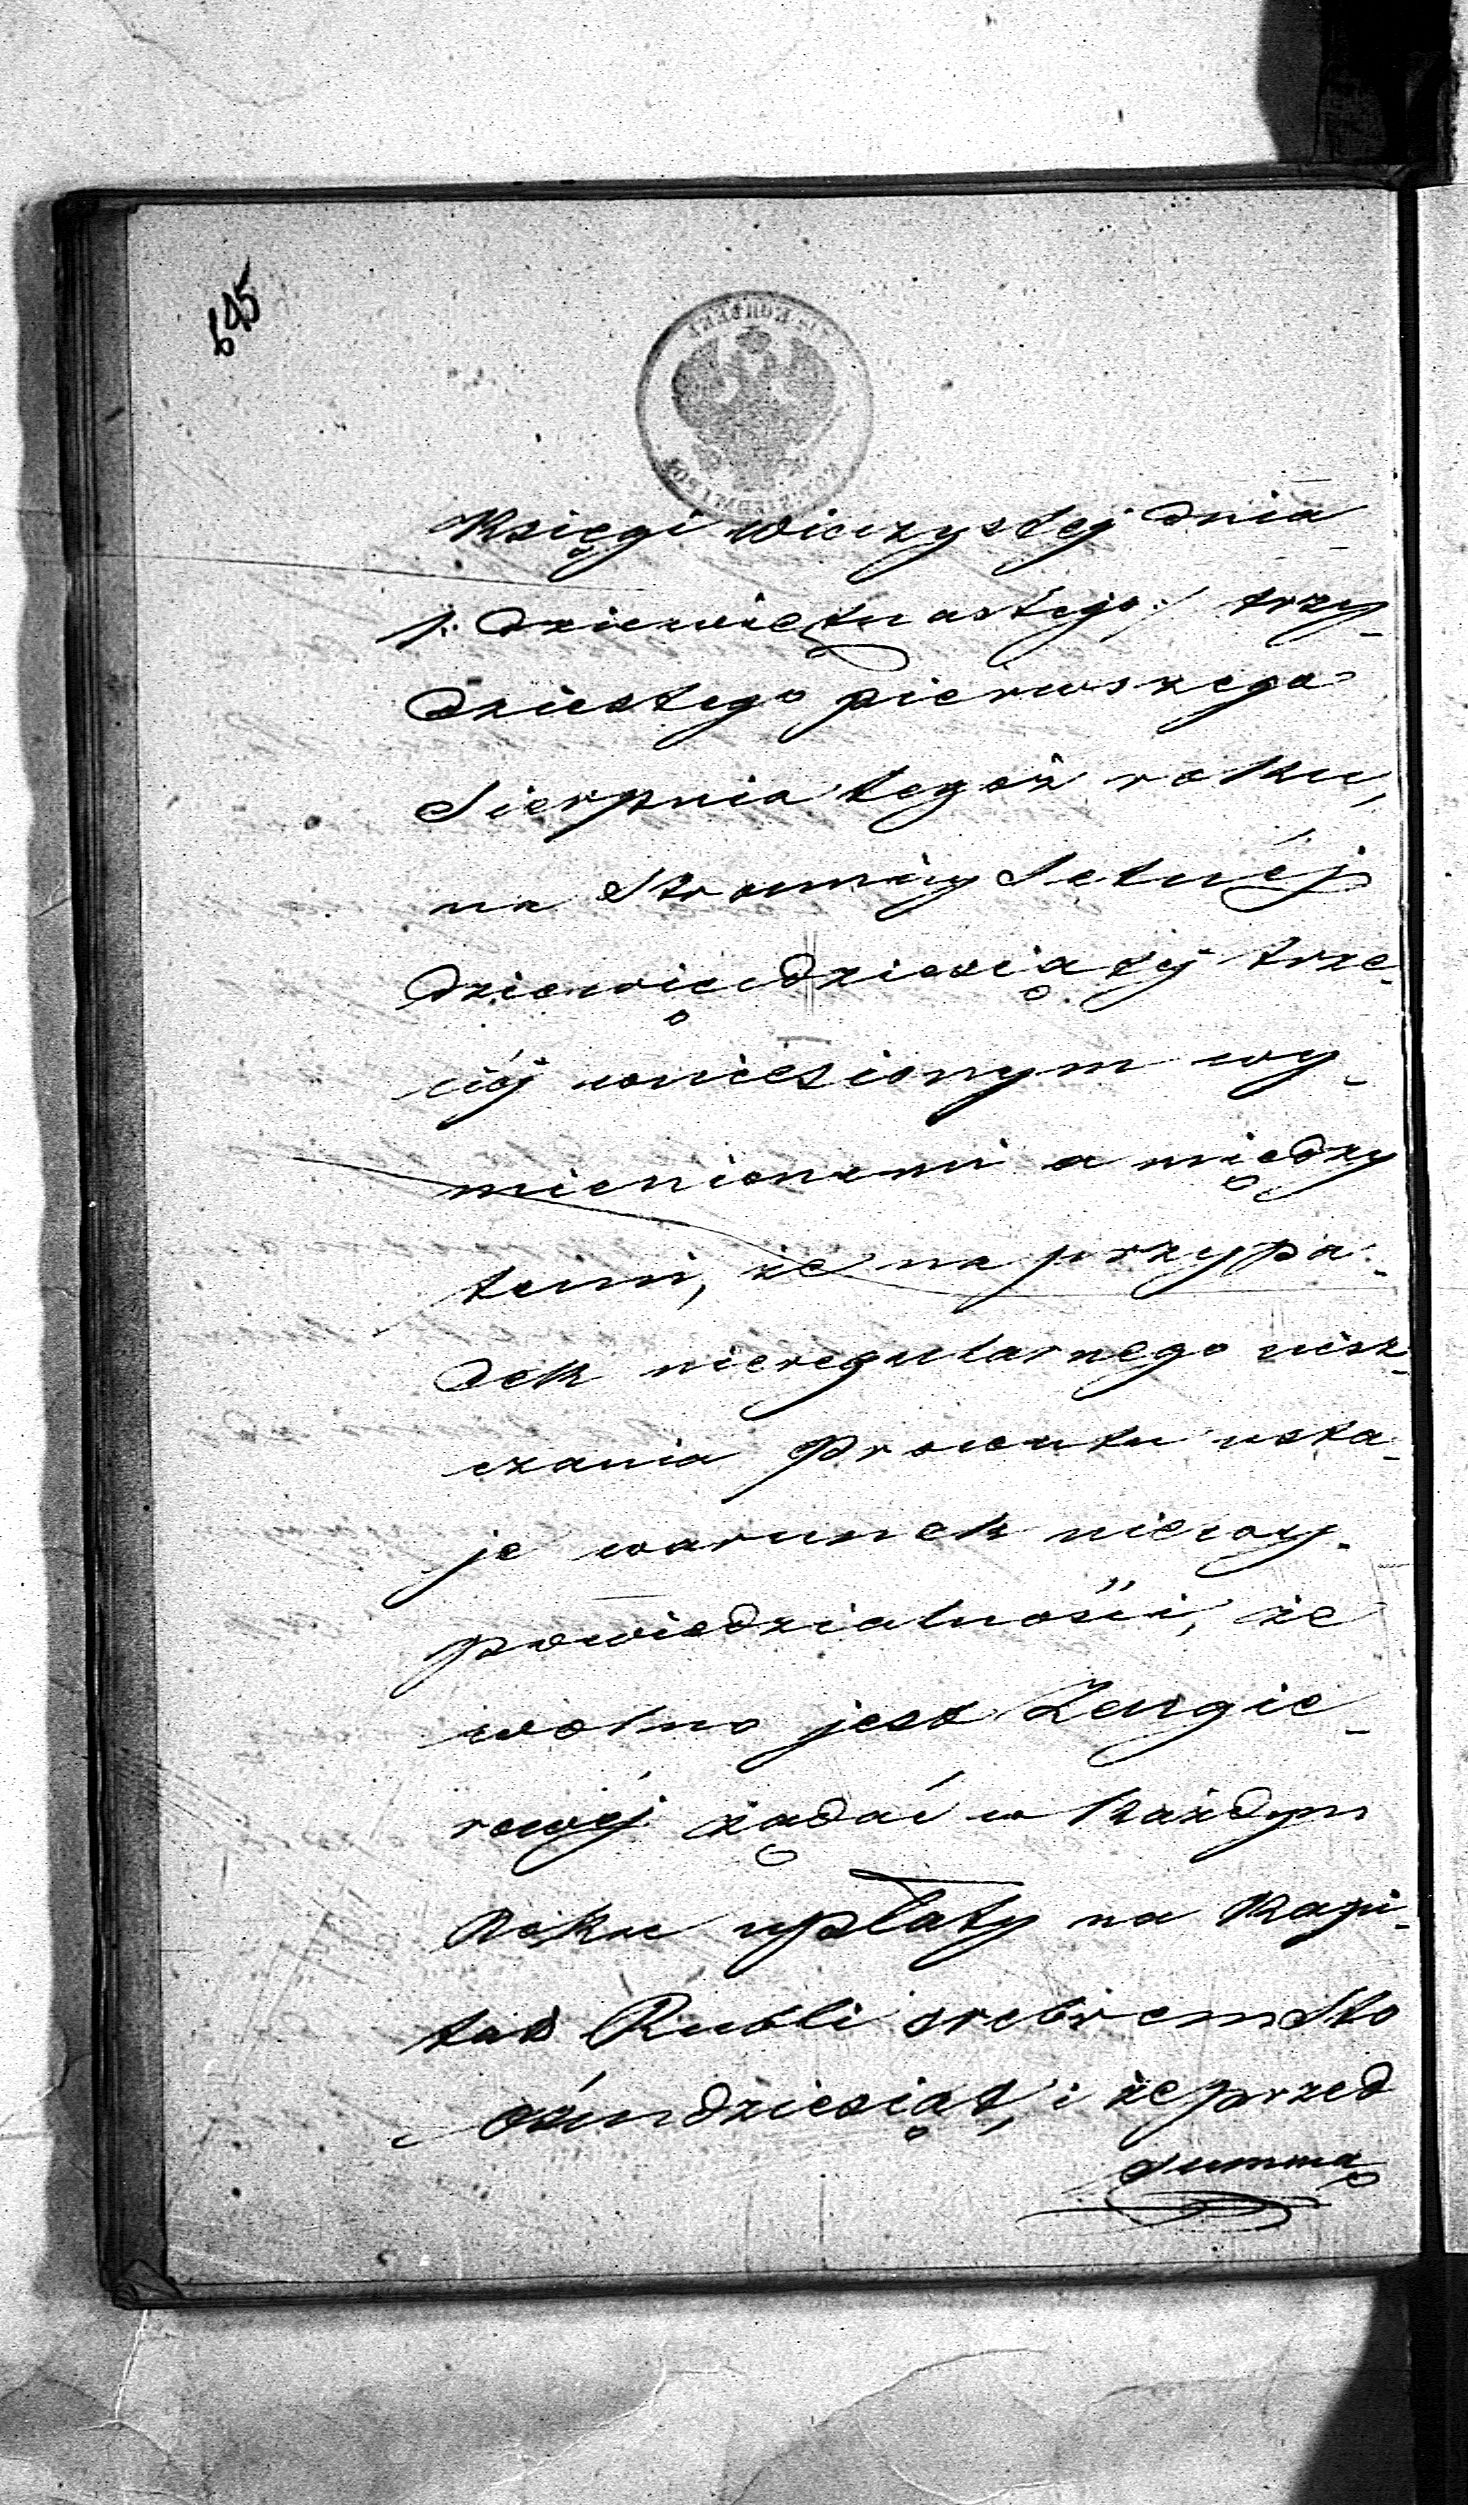 645
Księgi wieczystej dnia
/: dziewiętnastego :/ trzy-
dziestego pierwszego
Sierpnia tegoż roku,
na Stronnicy Setnéj
dziewięćdziesiątej trze-
ciéj wniesionym wy-
mienionemi a między
temi, że na przypa-
dek nieregularnego uisz-
czania Prowentu usta-
je warunek niewy-
powiedzialności, że
wolno jest Zengie-
rowéj żądać w każdym
Roku upłaty na Kapi-
tał Rubli srebrem Sto
ośmdziesiąt, i że przed
Summą